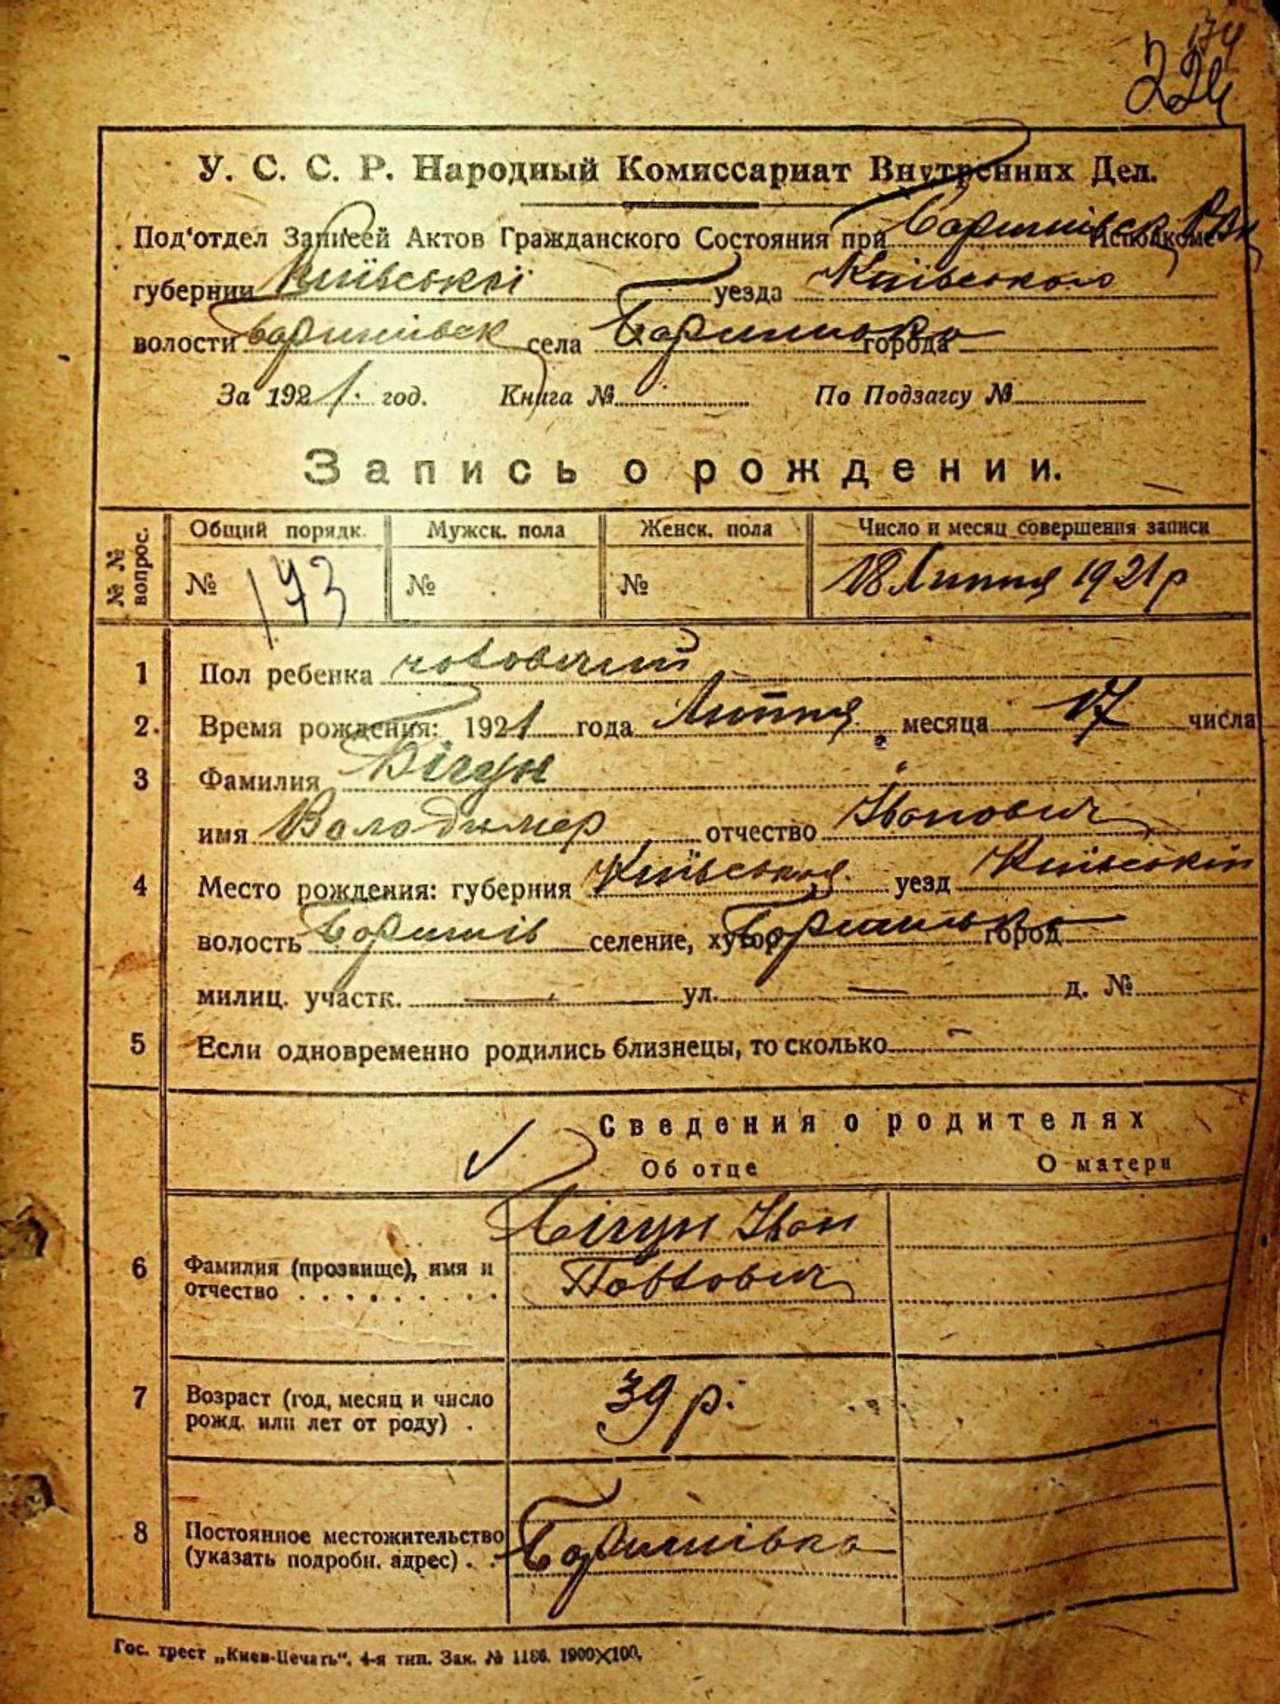 174
224
У. С. С. Р. Народный Комиссариат Внутренних Дел.
Под'отдел Записей Актов Гражданского Состояния при Баришівск Исполкоме
губернии Київської уезда Київського
волости Баришівск села Баришівка города
За 1921. год. Книга № По Подзагсу №
Запись о рождении.
№ № вопрос. Общий порядк. Мужск. пола Женск. пола Число и месяц совершения записи
№ 173 № № 18 Липня 1921 р
1 Пол ребенка чоловичий
2. Время рождения: 1921 года Липня месяца 17 числа
3 Фамилия Бігун
имя Володимер отчество Іванович
4 Место рождения: губерния Київська уезд Київський
волость Баришів селение, хутор Баришівка город
милиц. участк. — ул. — д. №
5 Если одновременно родились близнецы, то сколько —
Сведения о родителях
Об отце О матери
Бігун Іван
6 Фамилия (прозвище), имя и Павлович
отчество . . . . . . . . .
7 Возраст (год, месяц и число 39 р.
рожд. или лет от роду) .
8 Постоянное местожительство Баришівка
(указать подробн. адрес) . .
Гос. трест „Киев-Печать“. 4-я тип. Зак. № 1186. 1900×100.